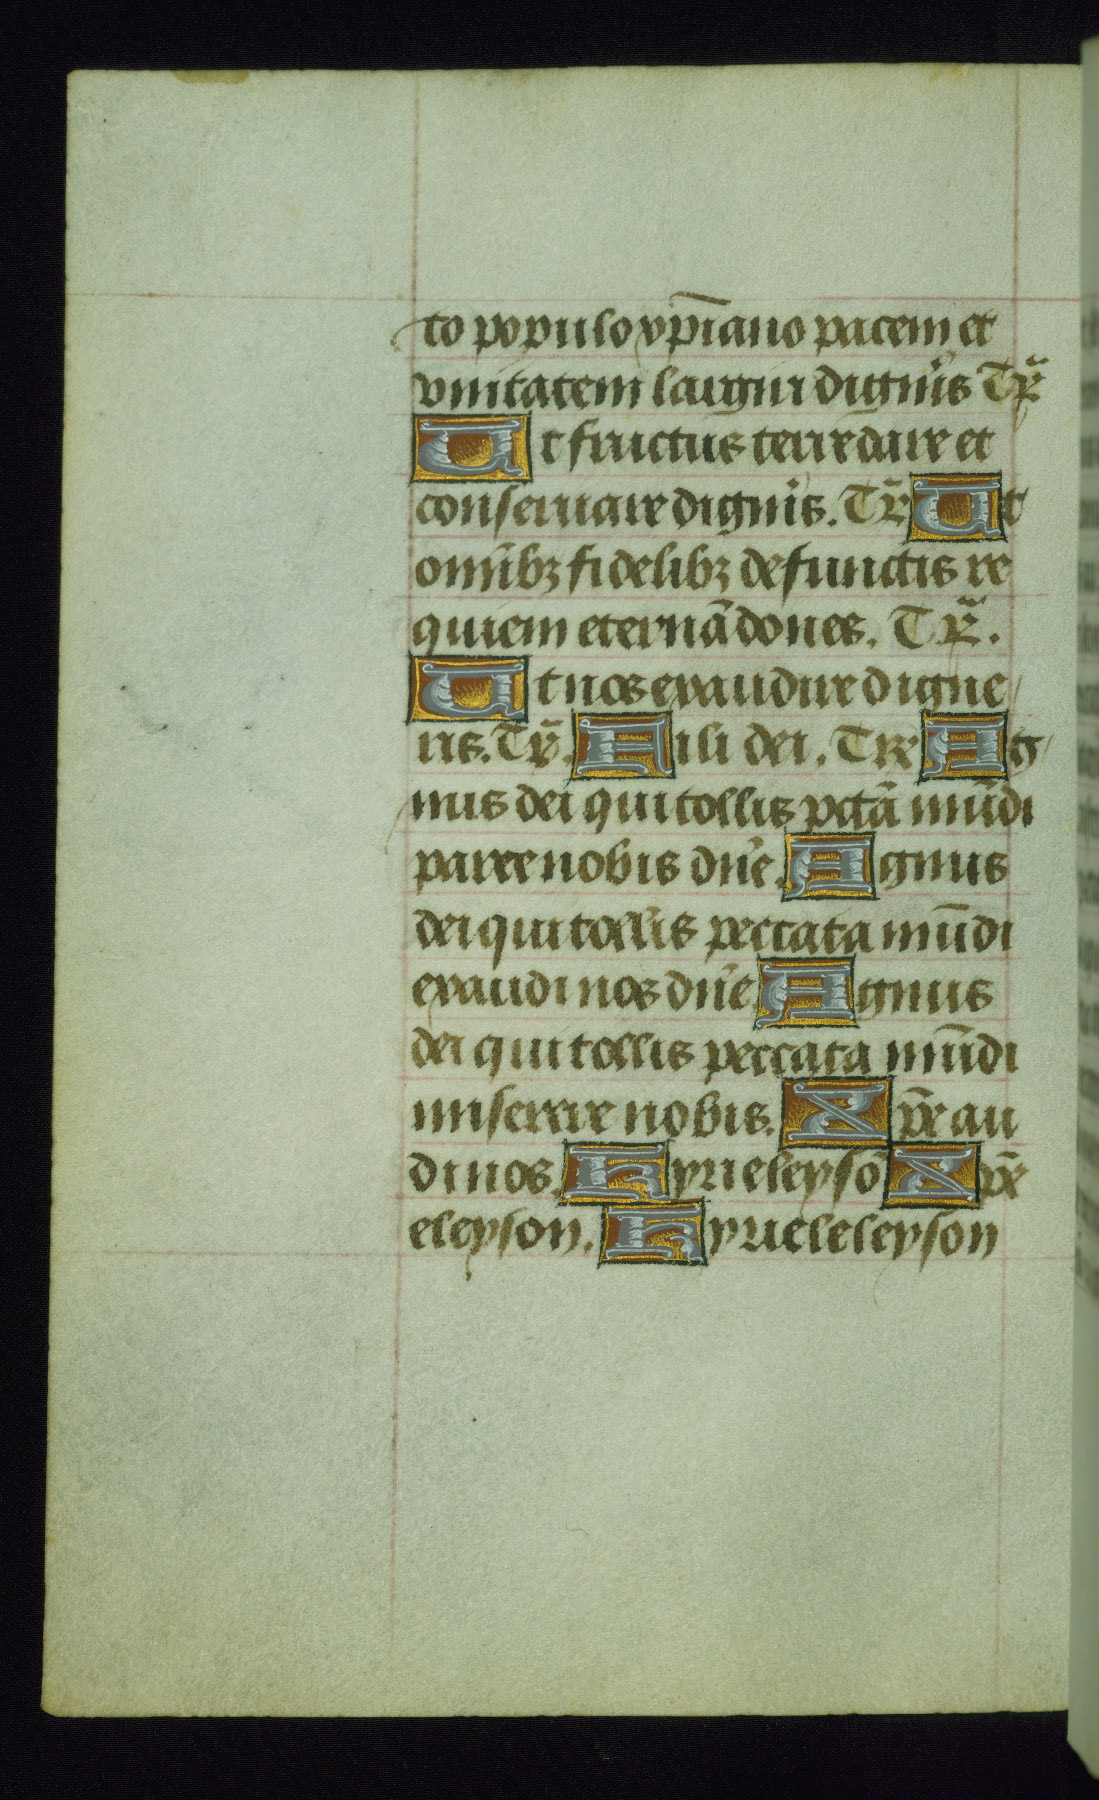 to populo xp̄iano pacem et
vnitatem largiri dign̾is Tr̃
Ut fructus terre dare et
conseruare digneris. Tr̃ Ut
om̄ibꝫ fidelibꝫ defunctis re
quiem eternā dones. Tr̃.
Ut nos exaudire digne
ris. Tr̃. Fili dei. Tr̃ Ag
nus dei qui tollis pctā mūdi
parce nobis dn̄e. Agnus
dei qui tollis peccata mūdi
exaudi nos dn̄e Agnus
dei qui tollis peccata mūdi
miserere nobis. Xp̄e au
di nos. Kyrieleysō Xp̄e
eleyson. Kyrieleleyson